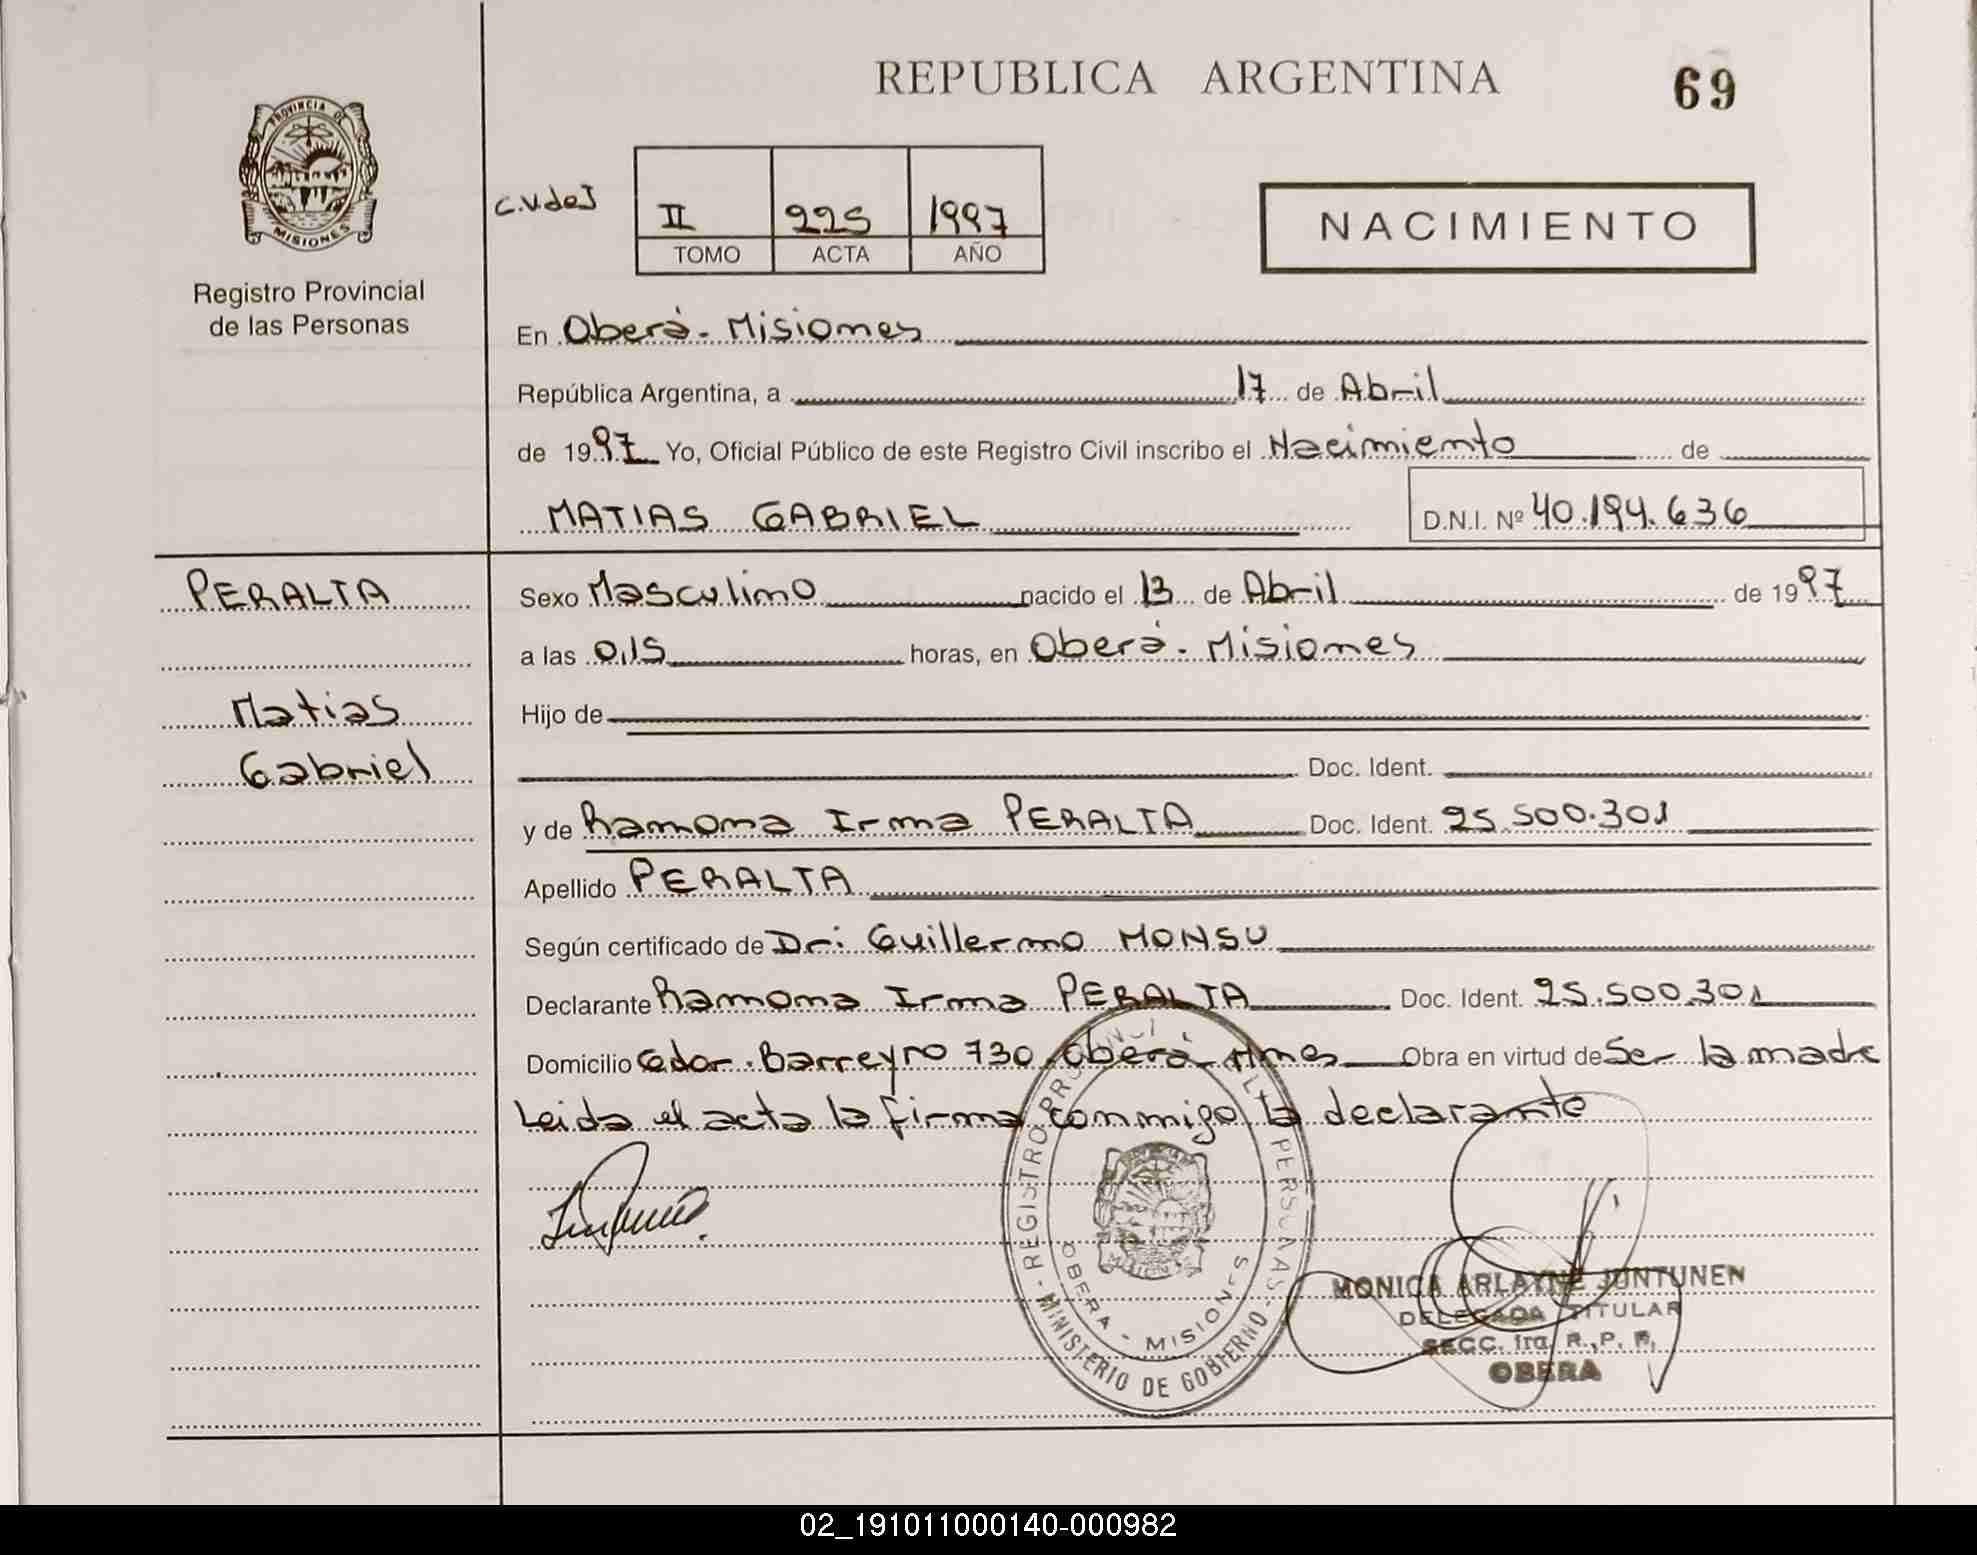 REPUBLICA ARGENTINA
69
PROVINCIA DE MISIONES
Registro Provincial
de las Personas
C.V de J
II 225 1997
TOMO ACTA AÑO
NACIMIENTO
En Oberá - Misiones
República Argentina, a 17 de Abril
de 1997 Yo, Oficial Público de este Registro Civil inscribo el Nacimiento de
MATIAS GABRIEL D.N.I. Nº 40.194.636
PERALTA
Matias
Gabriel
Sexo Masculino nacido el 13 de Abril de 1997
a las 0,15 horas, en Oberá - Misiones
Hijo de
Doc. Ident.
y de Ramona Irma PERALTA Doc. Ident. 25.500.301
Apellido PERALTA
Según certificado de Dr: Guillermo MONSU
Declarante Ramona Irma PERALTA Doc. Ident. 25.500.301
Domicilio Gdor. Barreyro 730 Oberá - Mnes Obra en virtud de Ser la madre
Leida el acta la firma conmigo la declarante
REGISTRO PROVINCIAL PERSONAS
OBERA - MISIONES
MINISTERIO DE GOBIERNO
MONICA ARLAYNE JUNTUNEN
DELEGADA TITULAR
SECC. 1ra. R. P. P.
OBERA
02_191011000140-000982